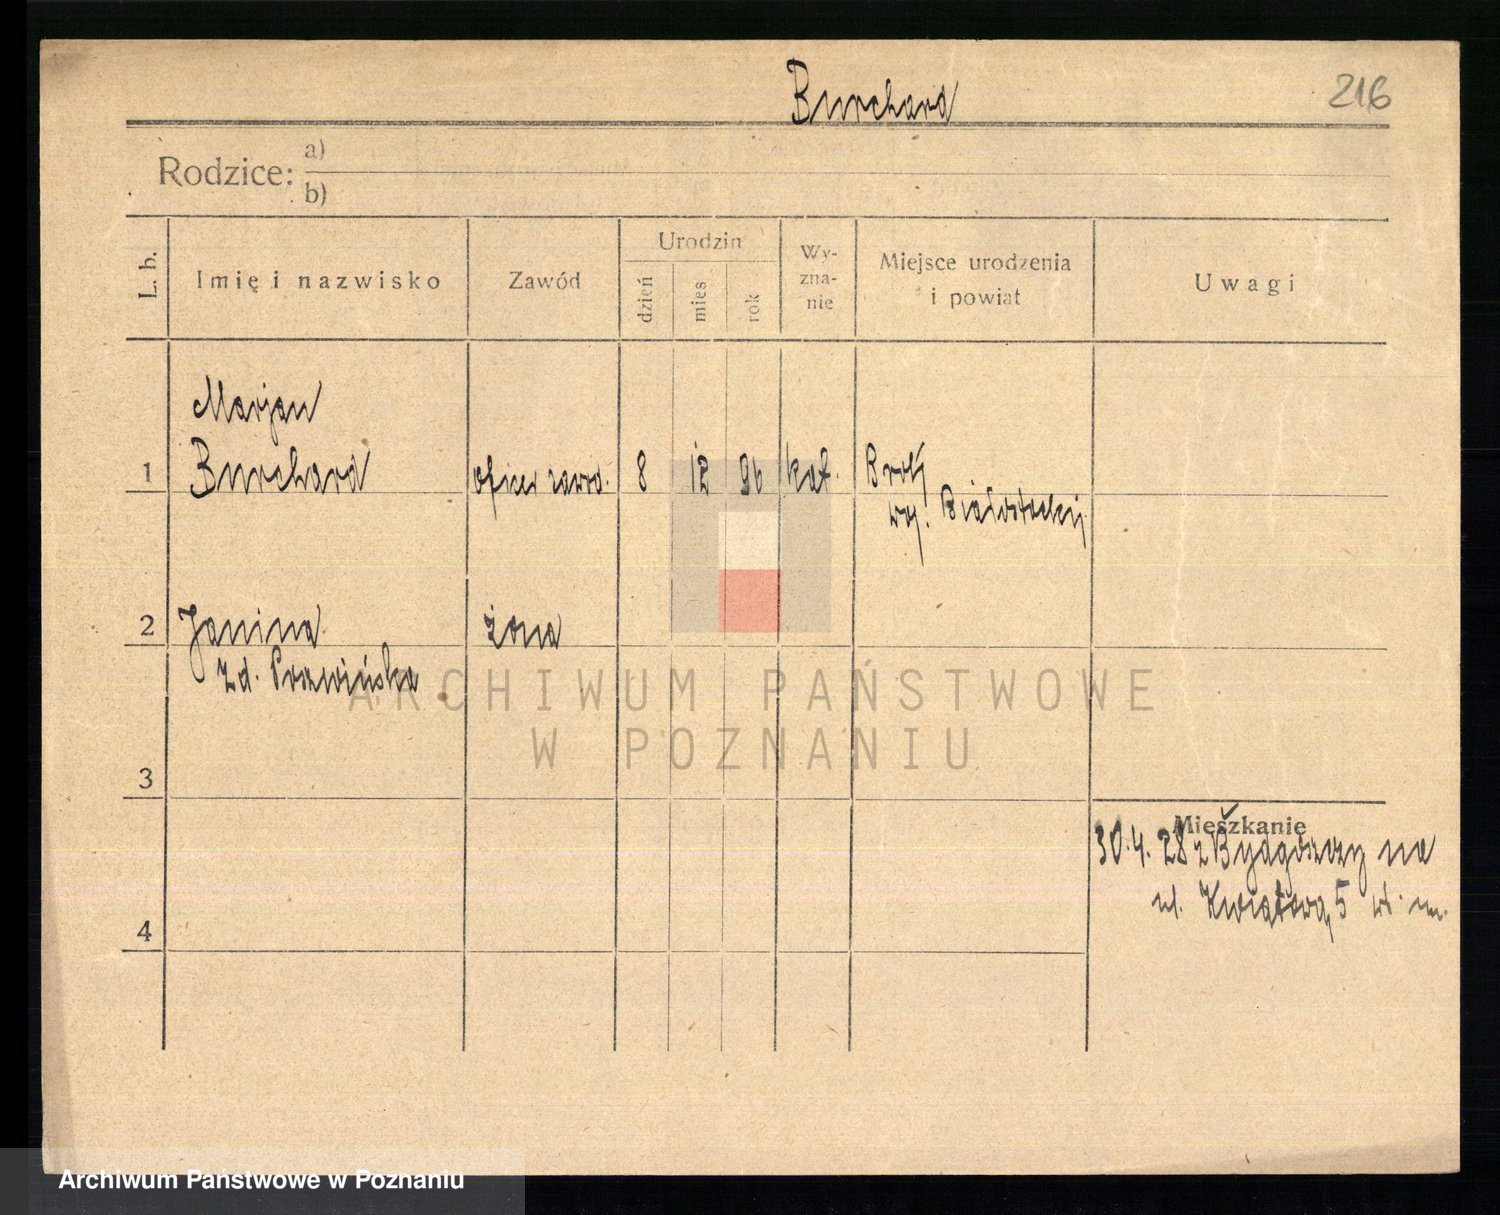 Burchard
216
Rodzice: a)
b)
L. b.
Imię i nazwisko
Zawód
Urodzin
dzień
mies
rok
Wy-
zna-
nie
Miejsce urodzenia
i powiat
Uwagi
Marjan
1 Burchard oficer zawod. 8 12 96 kat. Brok
woj. Białostockij
2 Janina żona
zd.
ARCHIWUM PAŃSTWOWE
W POZNANIU
3
Mieszkanie
30.4.28 z Bydgoszczy na
ul. Kwiatową 5
4
Archiwum Państwowe w Poznaniu